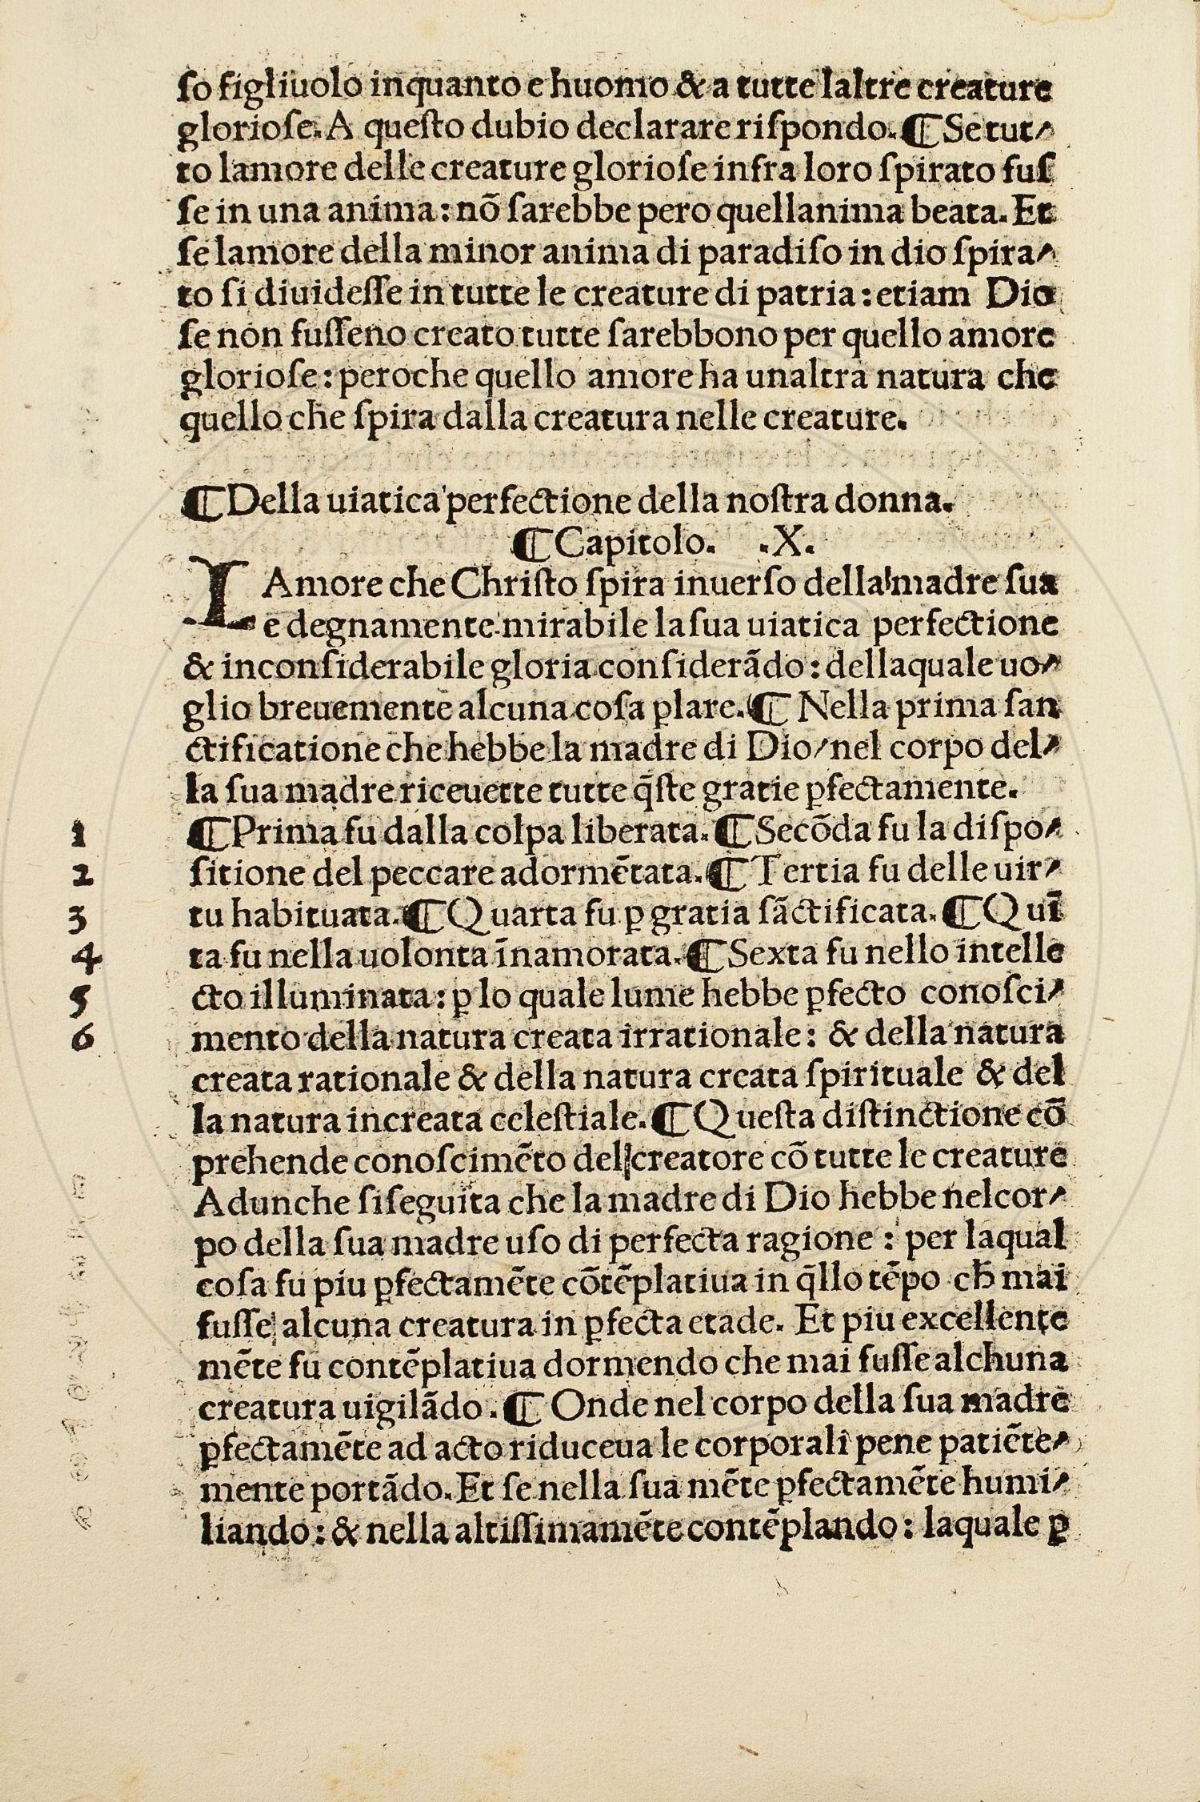 ſo figliuolo inquanto e huomo & a tutte laltre creature
glorioſe. A queſto dubio declarare riſpondo. ¶ Se tut⸗
to lamore delle creature glorioſe infra loro ſpirato fuſ
ſe in una anima: nō ſarebbe pero quellanima beata. Et
ſe lamore della minor anima di paradiſo in dio ſpira⸗
to ſi diuideſſe in tutte le creature di patria: etiam Dio
ſe non fuſſeno creato tutte ſarebbono per quello amore
glorioſe: peroche quello amore ha unaltra natura che
quello che ſpira dalla creatura nelle creature.
¶ Della uiatica perfectione della noſtra donna.
¶ Capitolo. .X.
LAmore che Chriſto ſpira inuerſo della madre ſua
e degnamente mirabile la ſua uiatica perfectione
& inconſiderabile gloria conſiderādo: dellaquale uo⸗
glio breuemente alcuna coſa ꝑlare. ¶ Nella prima ſan
ctificatione che hebbe la madre di Dio/nel corpo del⸗
la ſua madre riceuette tutte q̄ſte gratie ꝑfectamente.
1 ¶ Prima fu dalla colpa liberata. ¶ Secōda fu la diſpo⸗
2 ſitione del peccare adormētata. ¶ Tertia fu delle uir⸗
3 tu habituata. ¶ Quarta fu ꝑ gratia ſāctificata. ¶ Quī
4 ta fu nella uolonta īnamorata. ¶ Sexta fu nello intelle
5 cto illuminata: ꝑ lo quale lume hebbe ꝑfecto conoſci⸗
6 mento della natura creata irrationale: & della natura
creata rationale & della natura creata ſpirituale & del
la natura increata celeſtiale. ¶ Queſta diſtinctione cō
prehende conoſcimēto del creatore cō tutte le creature
Adunche ſi ſeguita che la madre di Dio hebbe nel cor⸗
po della ſua madre uſo di perfecta ragione: per laqual
coſa fu piu ꝑfectamēte cōtēplatiua in q̄llo tēpo cħ mai
fuſſe alcuna creatura in ꝑfecta etade. Et piu excellente
mēte fu contēplatiua dormendo che mai fuſſe alchuna
creatura uigilādo. ¶ Onde nel corpo della ſua madre
ꝑfectamēte ad acto riduceua le corporali pene patiēte⸗
mente portādo. Et ſe nella ſua mēte ꝑfectamēte humi⸗
liando: & nella altiſſimamēte contēplando: laquale ꝑ